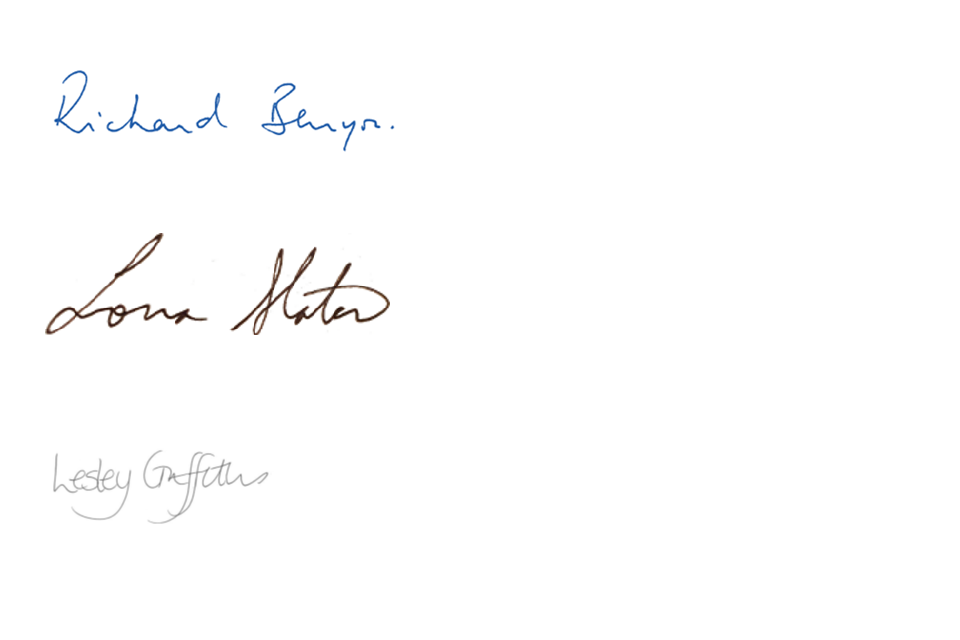 Richard Benyon.
Lorna Slater
Lesley Griffiths